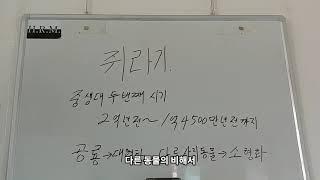 H.R.M.
쥐라기.
중생대 두번째 시기
2억년전~1억4500만년전까지
공룡→대형화 다른 동물→소형화
다른 동물의 비해서